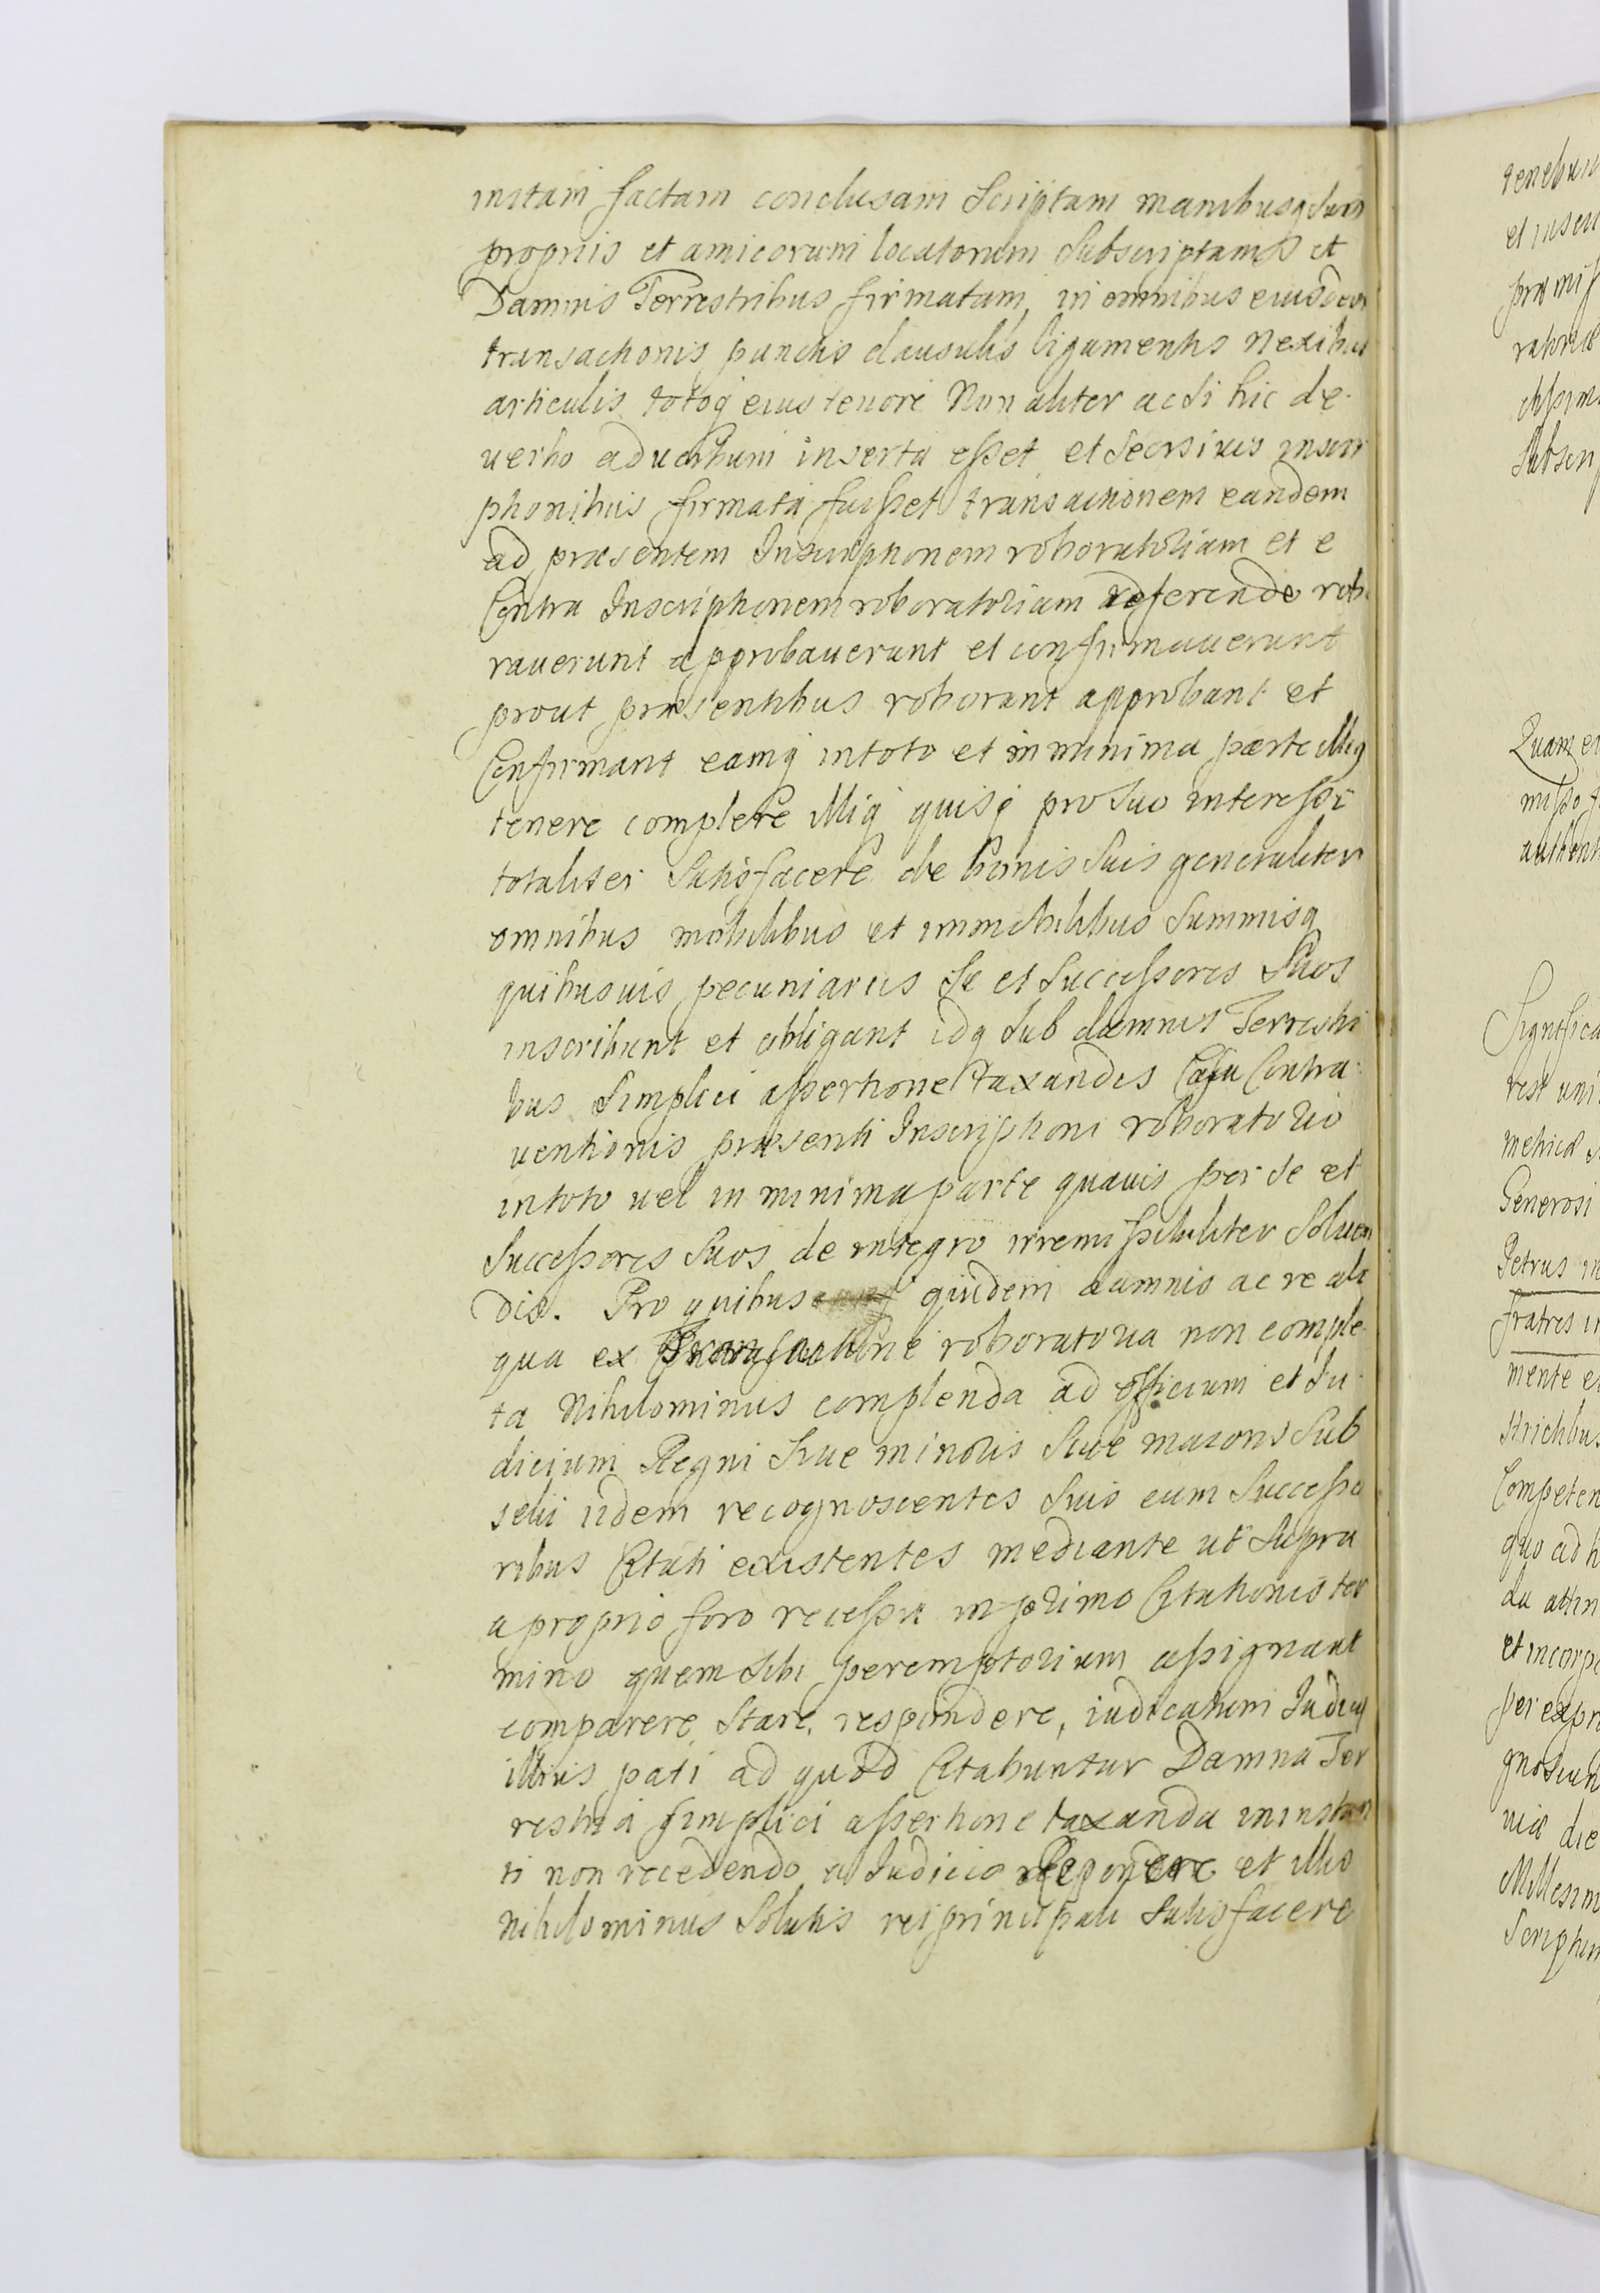 initam factam conclusam Scriptam manibusq suis
propriis et amicorum locatorum Subscriptam et
Damnis Terrestribus firmatam, in omnibus eiusdem
transactionis punctis clausulis ligamentis nexibus
articulis totoq eius tenore Non aliter ac si hic de
uerbo ad uerbum inserta esset et seorsiuis inscri
ptionibus firmata fuisset transactionem eandem
ad præsentem Inscriptionem roboratoriam et e
Contra Inscriptionem roboratoriam referendo robo
rauerunt approbauerunt et confirmauerunt
prout præsentibus roborant approbant et
Confirmant eamq in toto et in minima parte illiq
tenere complere illiq quisq pro suo interesse
totaliter Satisfacere de bonis Suis generaliter
omnibus mobilibus et immobilibus Summisq
quibusuis pecuniariis Se et Successores Suos
inscribunt et obligant idq Sub damnis Terrestri
bus Simplici assertione taxandis Casu Contra
uentionis præsenti Inscriptioni roboratorio
in toto uel in minima parte quauis per se et
Successores Suos de integro irremissibiliter Soluen
dis. Pro quibus quidem damnis ac re ali
qua ex Transactione roboratoria non comple
ta Nihilominus complenda ad officium et Ju
dicium Regni Siue minoris Siue maioris Sub
selii iidem recognoscentes Suis cum Successo
ribus Citati existentes mediante ut Supra
a proprio foro recessu in primo Citationis ter
mino quem Sibi peremptorium assignant
comparere, Stare, respondere, iudicatum Judicii
illius pati ad quod Citabuntur Damna Ter
restria Simplici assertione taxanda in instan
ti non recedendo a Judicio reponere et illis
Nihilominus Solutis rei principali Satisfacere
tenebun
et inscri
præmiss
ratoriæ
Subscri
Quam
misso
authent
Significa
rest uni
metricæ
Generosi
Petrus
fratres
mente
strictibus
Competen
quo ad h
da attin
et incorpo
per expre
gnoscunt
niæ die
Millesim
Scriptum